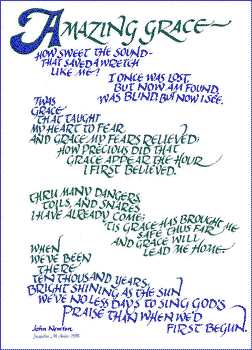 AMAZING GRACE
HOW SWEET THE SOUND-
THAT SAVED A WRETCH
LIKE ME!
I ONCE WAS LOST,
BUT NOW AM FOUND,
WAS BLIND, BUT NOW I SEE.
'TWAS
GRACE
THAT TAUGHT
MY HEART TO FEAR
AND GRACE MY FEARS RELIEVED;
HOW PRECIOUS DID THAT
GRACE APPEAR THE HOUR
I FIRST BELIEVED.
THRU MANY DANGERS
TOILS, AND SNARES
I HAVE ALREADY COME;
'TIS GRACE HAS BROUGHT
ME SAFE THUS FAR
AND GRACE WILL
LEAD ME HOME-
WHEN
WE'VE BEEN
THERE
TEN THOUSAND YEARS,
BRIGHT SHINING AS THE SUN
WE'VE NO LESS DAYS TO SING GOD'S
PRAISE THAN WHEN WE'D
FIRST BEGUN.
John Newton